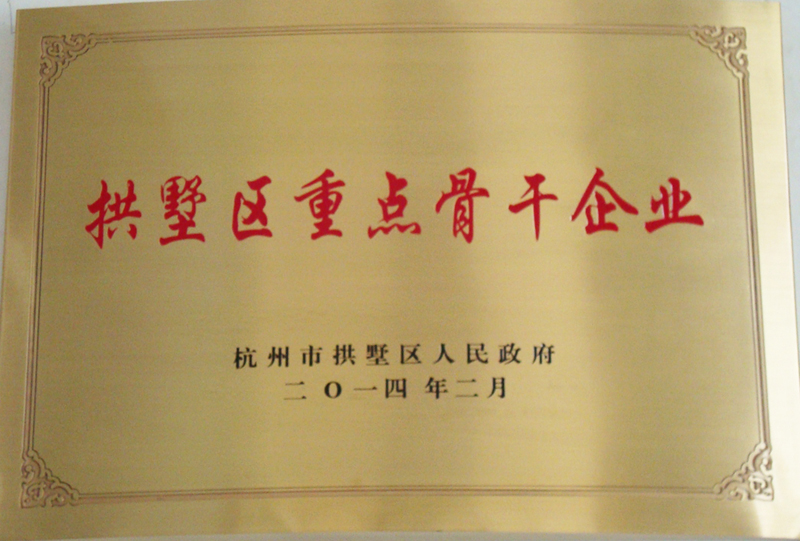 拱墅区重点骨干企业
杭州市拱墅区人民政府
二O一四年二月